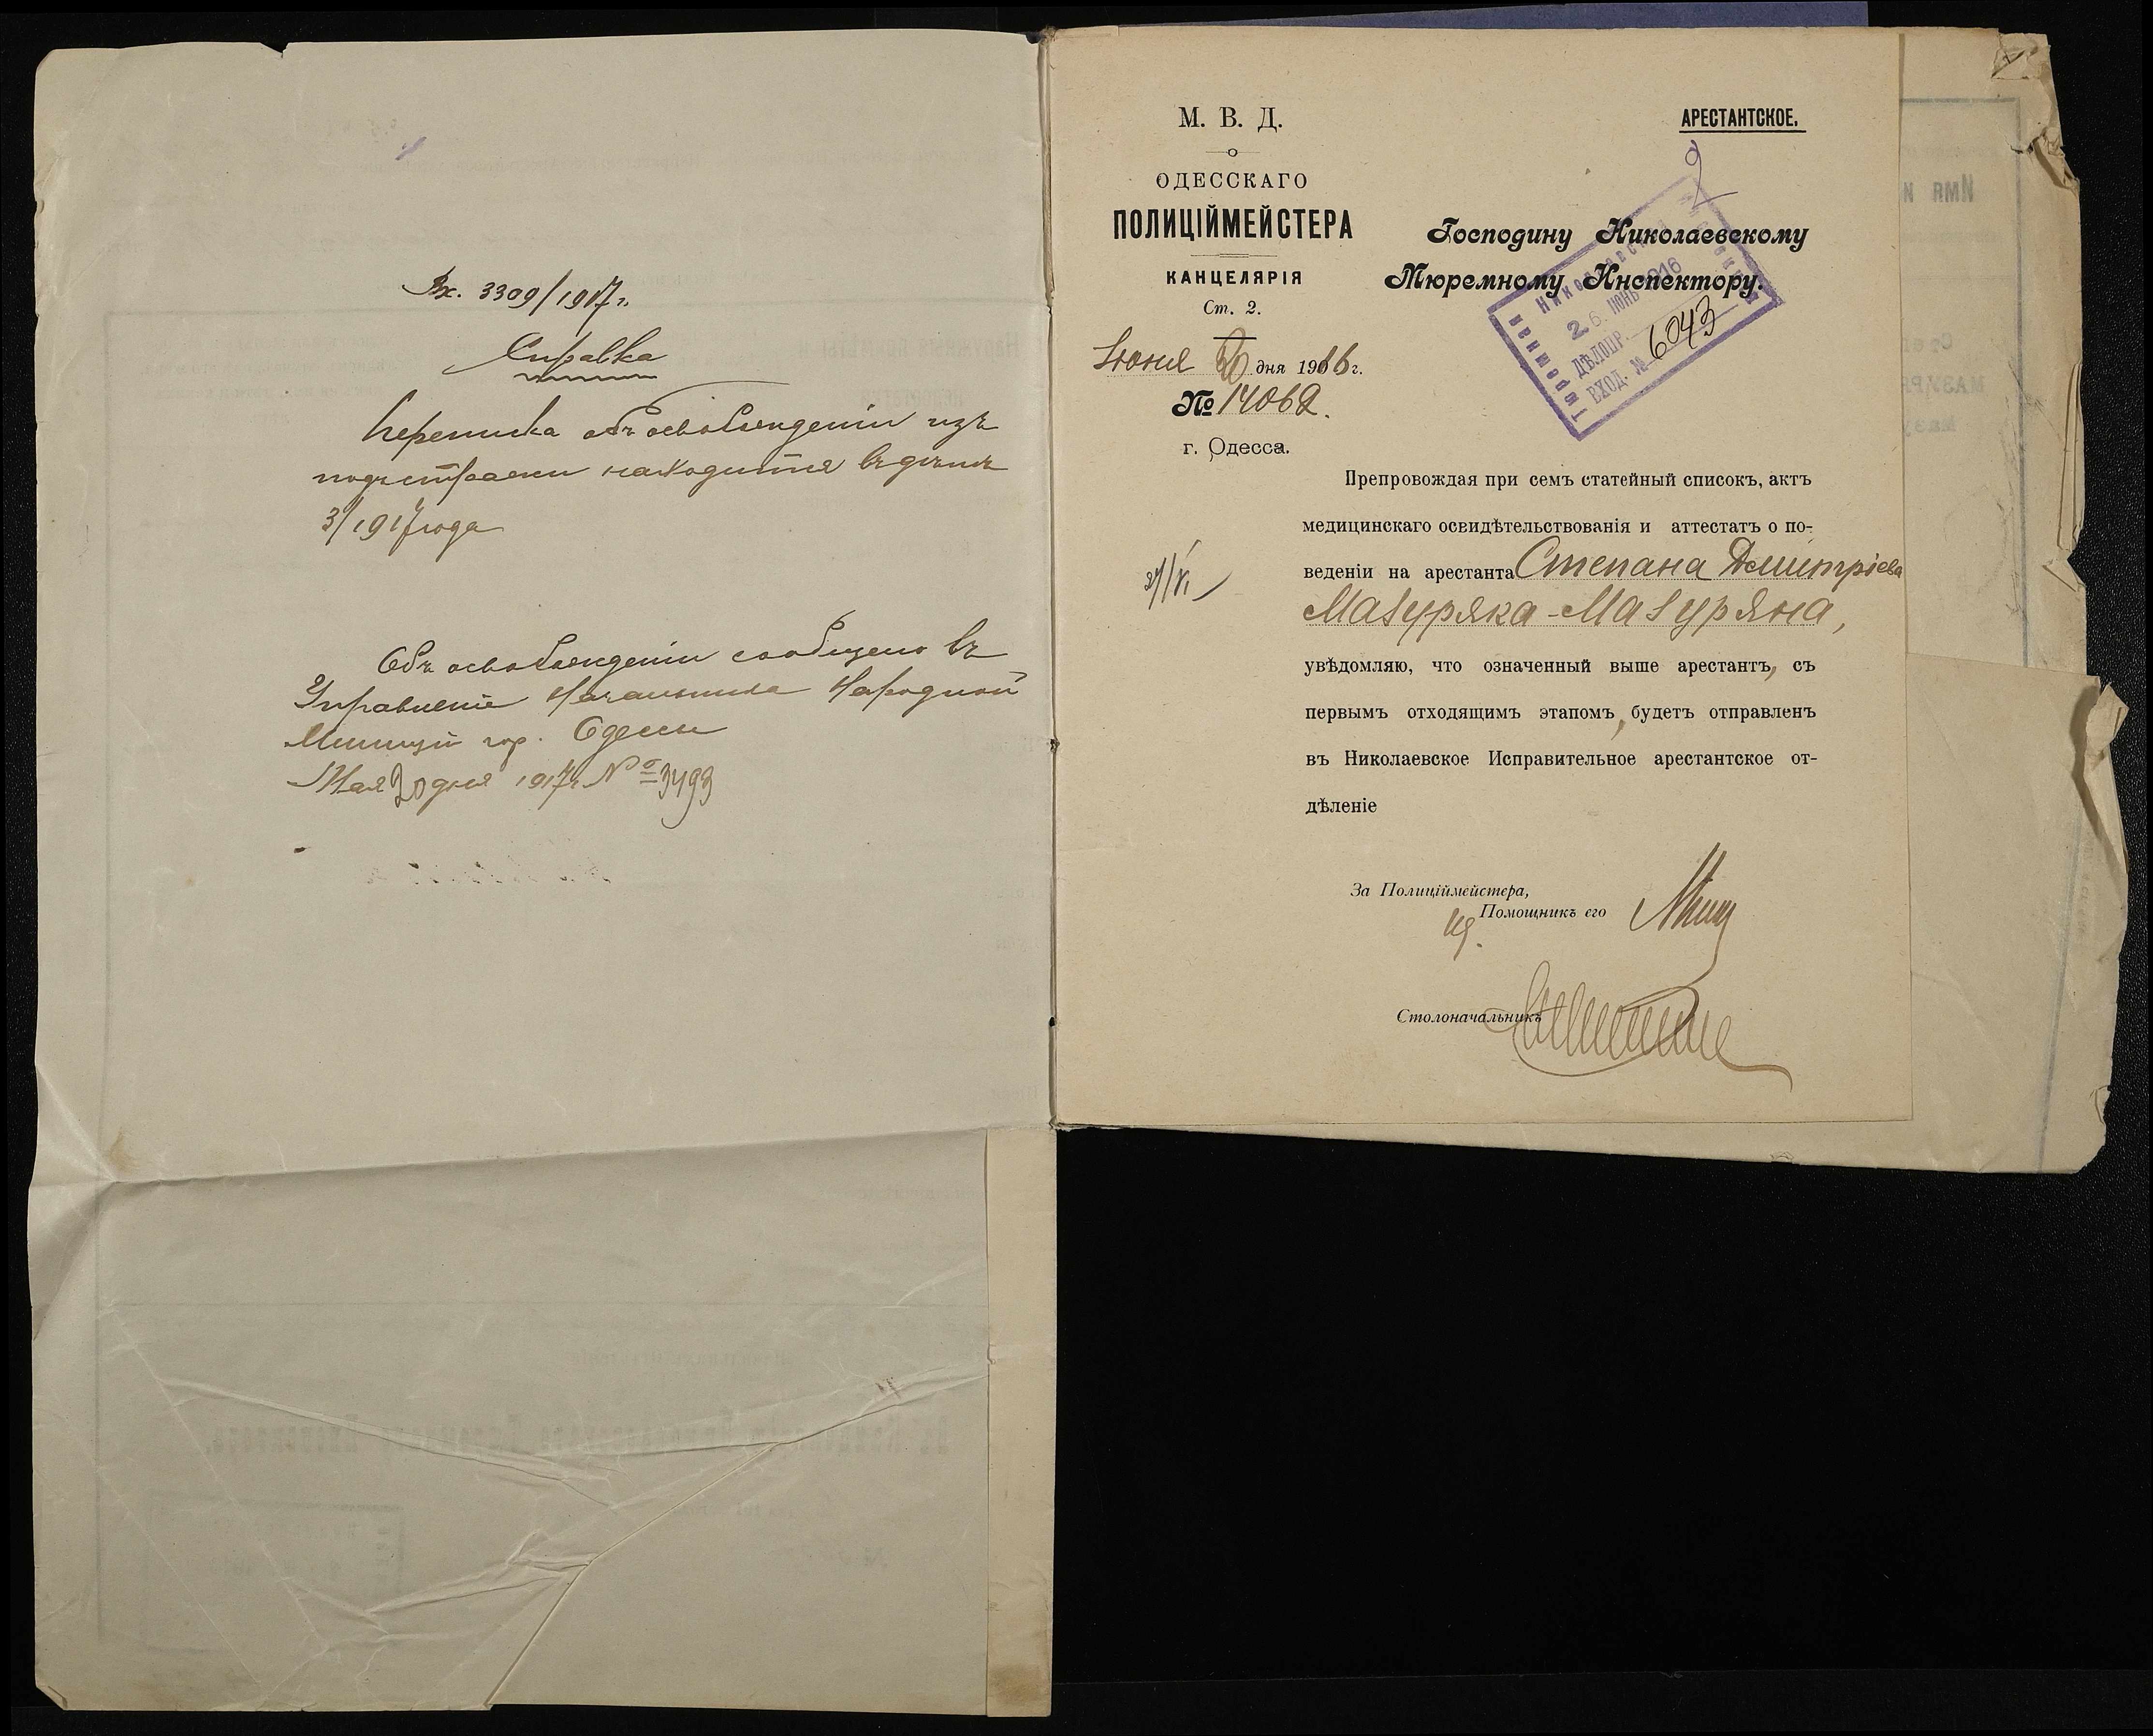 Вх. 3309/1917 г.
Справка
Переписка объ освобожденіи изъ
подъ стражи находится въ дѣлѣ
3/1917 года
Объ освобожденіи сообщено въ
Управленіе Начальника Народной
Милиціи гор. Одессы
Мая 20 дня 1917 г. № 3493
М. В. Д.
ОДЕССКАГО
ПОЛИЦІЙМЕЙСТЕРА
КАНЦЕЛЯРІЯ
Ст. 2.
Іюня 20 дня 1916 г.
№ 14062.
г. Одесса.
АРЕСТАНТСКОЕ.
9
Господину Николаевскому
Тюремному Инспектору.
Николаевская
Тюремная
26 ІЮНЬ 1916
ДѢЛОПР.
ВХОД. № 6043
27/VI
Препровождая при семъ статейный списокъ, актъ
медицинскаго освидѣтельствованія и аттестатъ о по-
веденіи на арестанта Степана Дмитріева
Мазуряка-Мазуряна,
увѣдомляю, что означенный выше арестантъ, съ
первымъ отходящимъ этапомъ, будетъ отправленъ
въ Николаевское Исправительное арестантское от-
дѣленіе
За Полиціймейстера,
Помощникъ его
Столоначальникъ